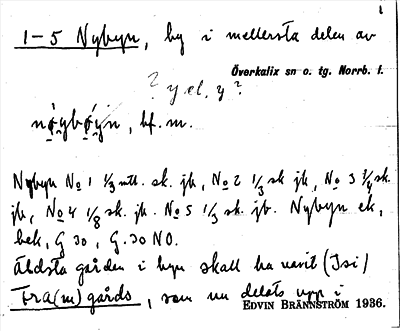 1
1-5 Nybyn, by i mellersta delen av
Överkalix sn o. tg. Norrb. l.
? y el. y ?
nǫ́ybǫ́yn, bf. m.
Nybyn No 1 1/3 mtl. sk. jb, No 2 1/3 sk jb, No 3 1/4 sk.
jb, No 4 1/8 sk. jb. No 5 1/3 sk. jb. Nybyn ek,
bek, G 30, G. 30 NO.
Äldsta gården i byn skall ha varit (Isi)
Fra(m)gårds, som nu delats upp i
EDVIN BRÄNNSTRÖM 1936.